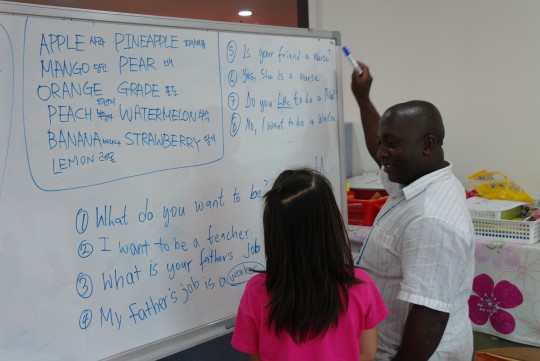 APPLE 사과 PINEAPPLE 파인애플
MANGO 망고 PEAR 배
ORANGE GRADE 포도
PEACH 복숭아 WATERMELON 수박
BANANA 바나나 STRAWBERRY 딸기
LEMON 레몬
① What do you want to be?
② I want to be a teacher.
③ What is your father's job
④ My father's job is a worker
⑤ Is your friend a Nurse?
⑥ Yes, She is a nurse
⑦ Do you like to be a
⑧ No, I want to be a